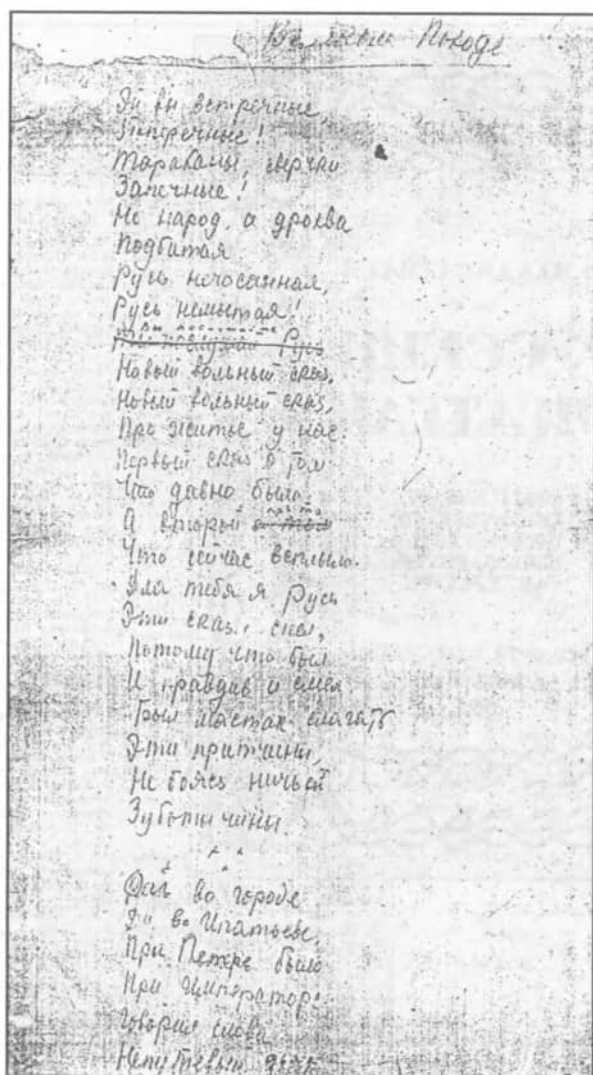 Великом Походе
Эй вы встречные,
Поперечные!
Тараканы, сверчки
Запечные!
Не народ, а дрохва
Подбитая
Русь нечосанная,
Русь немытая!
Вы послушайте
Русь
Новый вольный сказ,
Новый вольный сказ,
Про житье у нас.
Первый сказ о том
Что давно было.
А второй про то
Что сейчас всплыло.
Для тебя я Русь
Эти сказы спел,
Потому что был
И правдив и смел
Был мастак слагать
Эти притчины,
Не боясь ничьей
Зуботычины.
во городе
во Ипатьеве,
При Петре было
При императоре.
Говорил слова
Непутевый дьяк